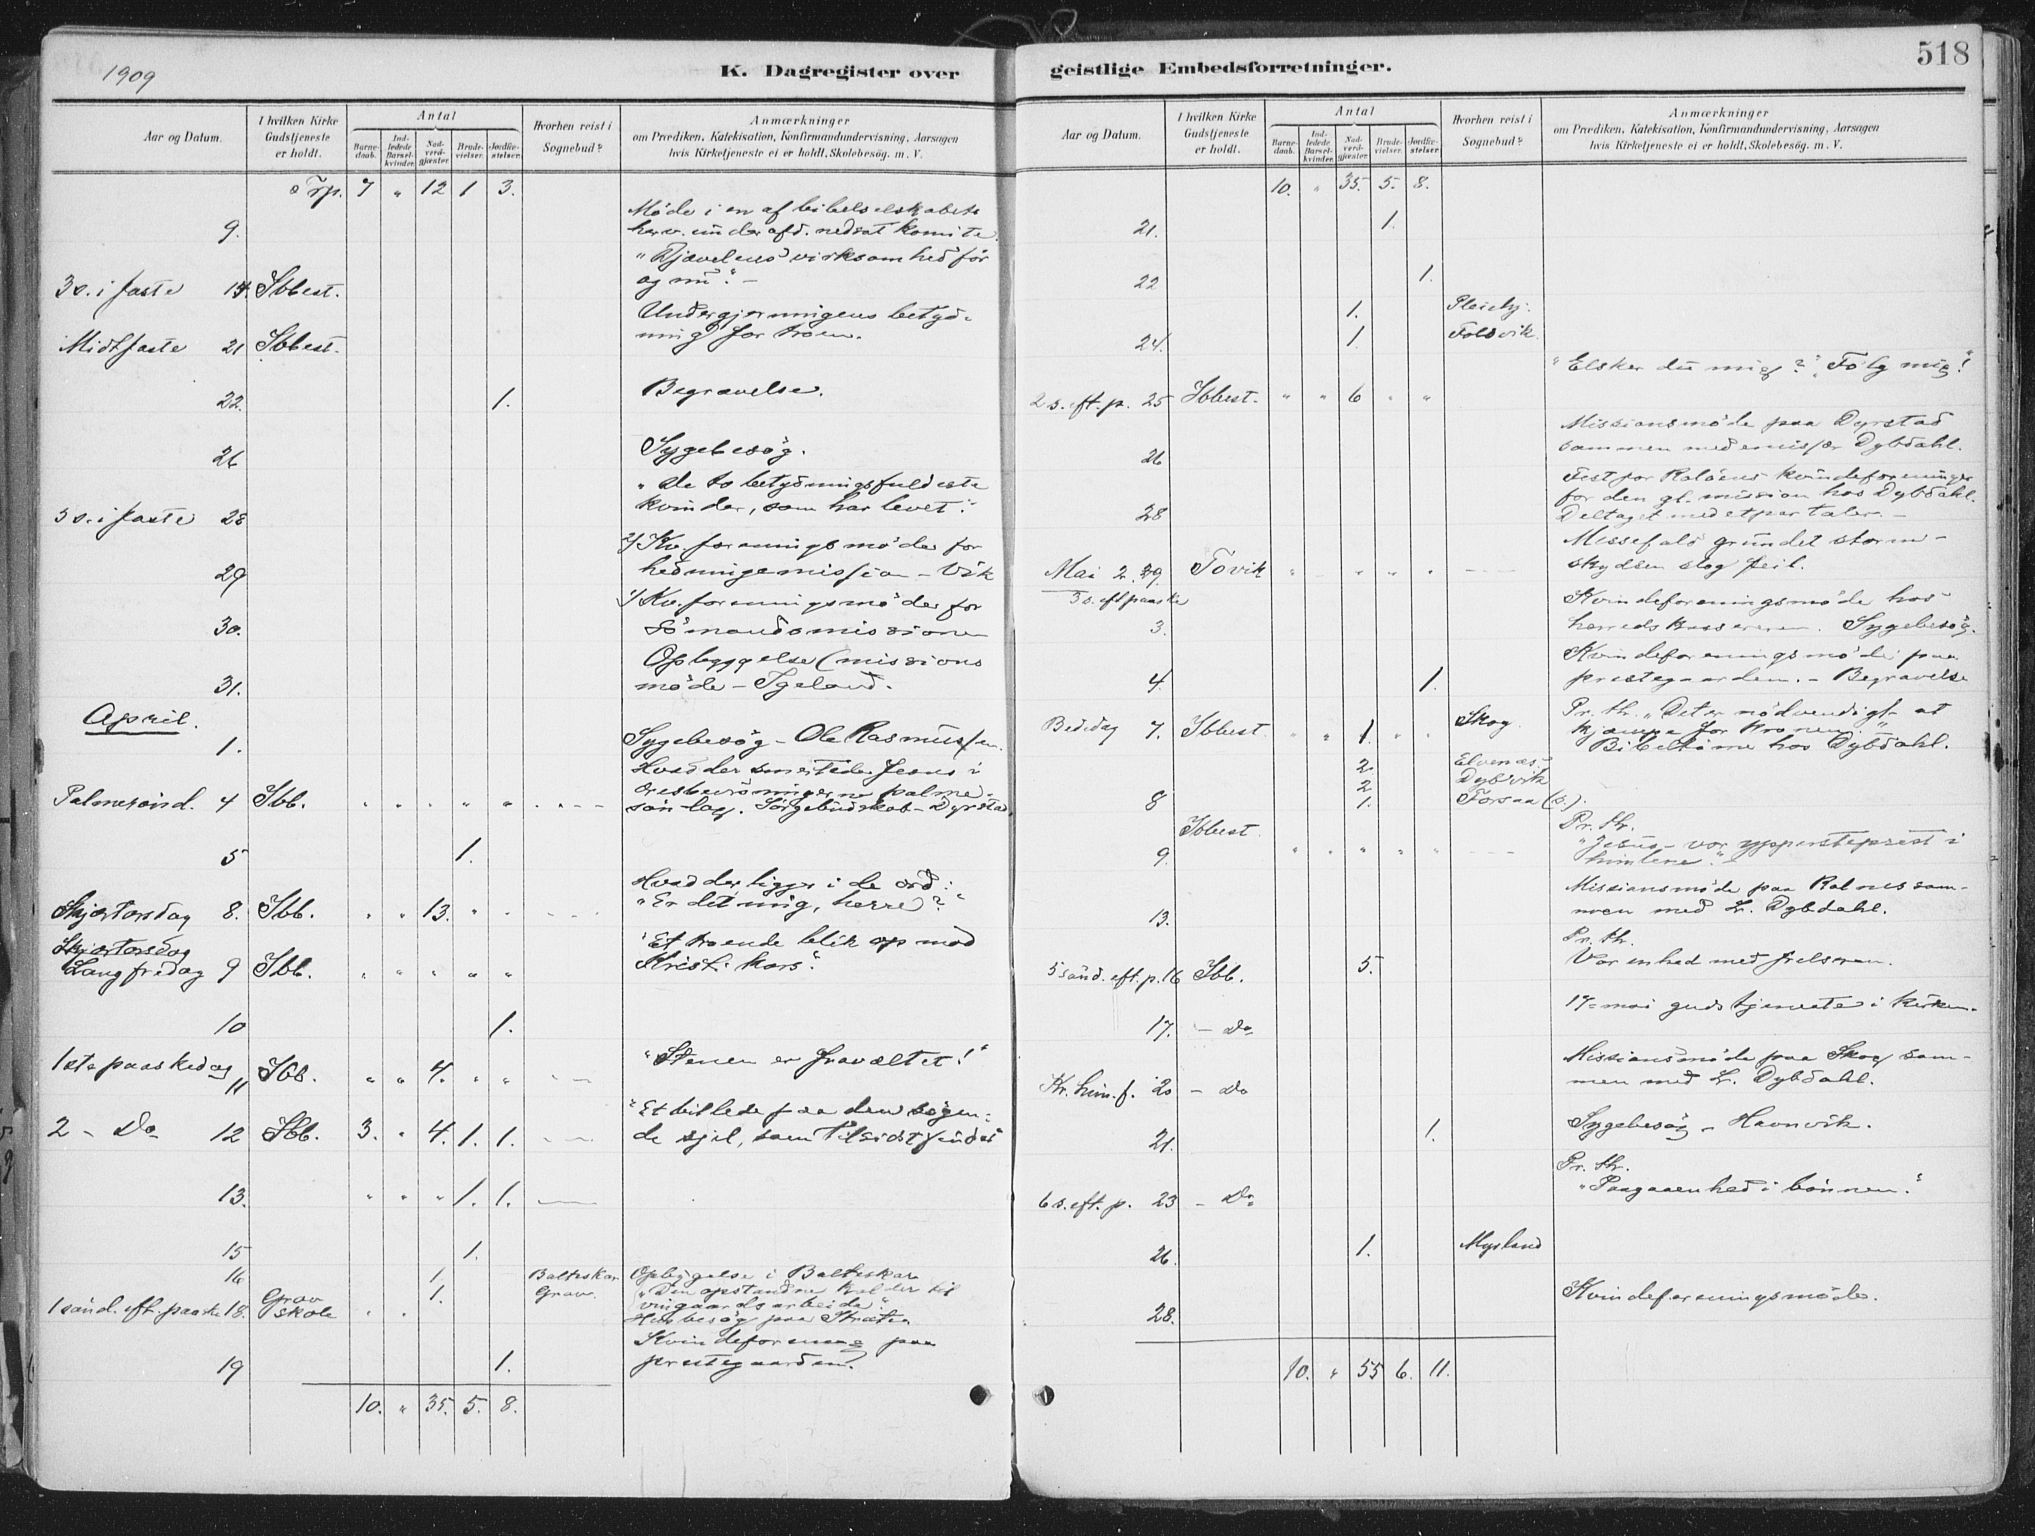 1909
K. Dagregister over
Aar og Datum.
I hvilken Kirke Gudstjeneste er holdt.
Antal
Barne-daab.
Ind-ledede Barsel-kvinder.
Nad-verd-gjæster.
Brude-vielser.
Jordfæ-stelser.
Hvorhen reist i Sognebud?
Anmærkninger
om Prædiken, Katekisation, Konfirmandundervisning, Aarsagen
hvis Kirketjeneste ei er holdt, Skolebesøg. m. V.
Trp. 7 " 12 1 3.
Møde i en af bibelselskabets
9. herv. underafd. nedsat komite.
"Djævelens virksomhed før
3 s. i faste 14. Ibbest. og nu". -
Undergjerningens betyd-
Midtfaste 21 Ibbest. ning for troen.
22. 1. Begravelse.
26 Sygebesøg.
"De to betydningsfuldeste
5 s. i faste 28 kvinder, som har levet".
2/ Kv. foreningsmøder for
29 hedningemission - Vik
1/ Kv. foreningsmøder for
30. Sømandsmissionen
Opbyggelse (missions
31. møde - Igeland.
April.
1. Sygebesøg - Ole Rasmussen.
Hvad der smertede Jesus i
æresbevisningerne palme-
Palmesønd. 4 Ibb. " " " " " søndag. Sørgebudskab - Dyrstad
5 1.
Hvad der ligger i de ord:
Skjærtorsdag 8. Ibb. " " 13. " " "Er det mig, herre?"
Skjærtorsdag
"Et troende blik op mod
Langfredag 9 Ibb. " " " " " Kristi kors".
10 1.
1ste paaskedag 11 Ibb. " " 4. " " "Stenen er fravæltet!"
"Et billede paa den søgen-
2 - Do 12 Ibb. 3. " 4. 1. 1. de sjel, som tilsidst findes
13. " " " 1. 1.
15 1.
16 1. Balteskar Opbygelse i Balteskar
1 sønd. eft. paaske 18. Grav skole " " 1. Grav. "Den opstandne kalder til
vingaardsarbeide".
Husbesøg paa Stratin
Kvindeforening paa
19 1. prestegaarden.
10. " 35. 5. 8.
518
geistlige Embedsforretninger.
Aar og Datum.
I hvilken Kirke Gudstjeneste er holdt.
Antal
Barne-daab.
Ind-ledede Barsel-kvinder.
Nad-verd-gjæster.
Brude-vielser.
Jordfæ-stelser.
Hvorhen reist i Sognebud?
Anmærkninger
om Prædiken, Katekisation, Konfirmandundervisning, Aarsagen
hvis Kirketjeneste ei er holdt, Skolebesög. m. V.
10. " 35. 5. 8.
21. 1.
22 1.
1.
24. 1. Foldvik
"Elsker du mig?" "Følg mig!"
2 s. eft. p. 25 Ibbest. " " 6 " "
Missionsmøde paa Dyrstad
26 sammen med emissær Dybdahl.
Fest for Rolløens kvindeforeninger
for den gl. mission hos Dybdahl.
28 Deltaget med et par taler. -
Messefald grundet storm -
Mai 2. Tovik " " " " skydsen slog feil.
3 s. eft paaske
Kvindeforeningsmøde hos
3. herredskassereren. Sygebesøg.
Kvindeforeningsmøde paa
4. 1. prestegaarden. - Begravelse
Pr. th. "Det er nødvendigt at
Bededag 7. Ibbest " " 1. " " Skog. kjæmpe for kronen."
Bibeltime hos Dybdahl.
2. Elvenes
2 Dybvik
8 1. Forsaa (s.).
Pr. th.
Ibbest. "Jesus - vor ypperstepræst i
9. " " " " " himlene".
Missionsmøde paa Rolnes sam-
13. men med L. Dybdahl.
Pr. th.
5 sønd. eft. p. 16 Ibb. 5. Vor enhed med frelseren.
17. - Do 17-mai gudstjeneste i kirken.
Missionsmøde paa Skog sam-
Kr. him. f. 20 - Do men med L. Dybdahl.
21. 1. Sygebesøg - Havnvik.
Pr. th.
6 s. eft. p. 23 - Do "Paagaaenhed i bønnen".
26. 1. Mysland
28. Kvindeforeningsmøde.
10. " 55 6. 11.